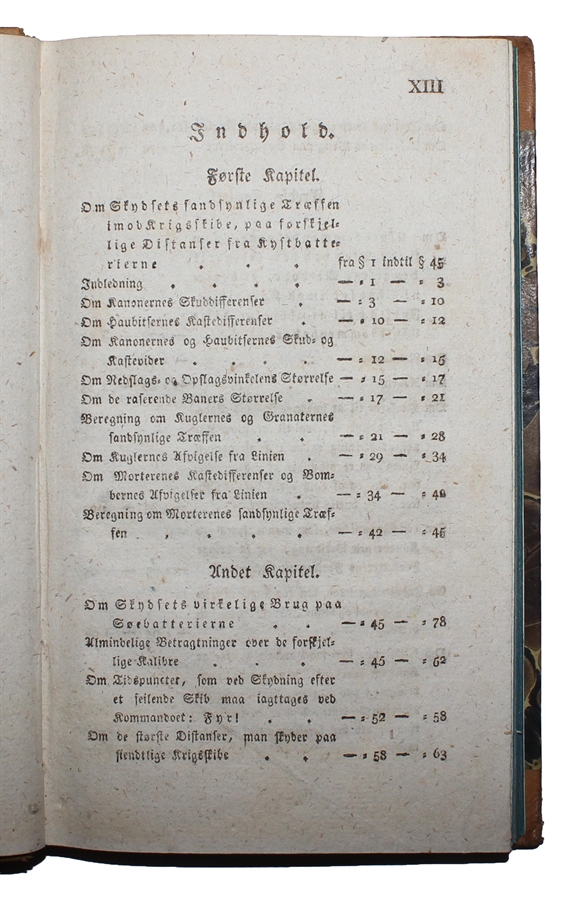 XIII
Indhold.
Første Kapitel.
Om Skydsets sandsynlige Træffen
imod Krigsskibe, paa forskjel=
lige Distanser fra Kystbatte=
rierne . . . fra § 1 indtil § 45
Indledning . . . . — = 1 — = 3
Om Kanonernes Skuddifferenser . — = 3 — = 10
Om Haubitsernes Kastedifferenser . — = 10 — = 12
Om Kanonernes og Haubitsernes Skud= og
Kastevider . . . . — = 12 — = 15
Om Nedslags= og Opslagsvinkelens Størrelse — = 15 — = 17
Om de raserende Baners Størrelse . — = 17 — = 21
Beregning om Kuglernes og Granaternes
sandsynlige Træffen . . — = 21 — = 28
Om Kuglernes Afvigelse fra Linien . — = 29 — = 34
Om Morterenes Kastedifferenser og Bom=
bernes Afvigelser fra Linien . — = 34 — = 40
Beregning om Morterenes sandsynlige Træf=
fen . . . . . — = 42 — = 45
Andet Kapitel.
Om Skydsets virkelige Brug paa
Søebatterierne . . — = 45 — = 78
Almindelige Betragtninger over de forskjel=
lige Kalibre . . . — = 45 — = 52
Om Tidspunctet, som ved Skydning efter
et seilende Skib maa iagttages ved
Kommandoet: Fyr! . . — = 52 — = 58
Om de største Distanser, man skyder paa
fiendtlige Krigsskibe . . — = 58 — = 63